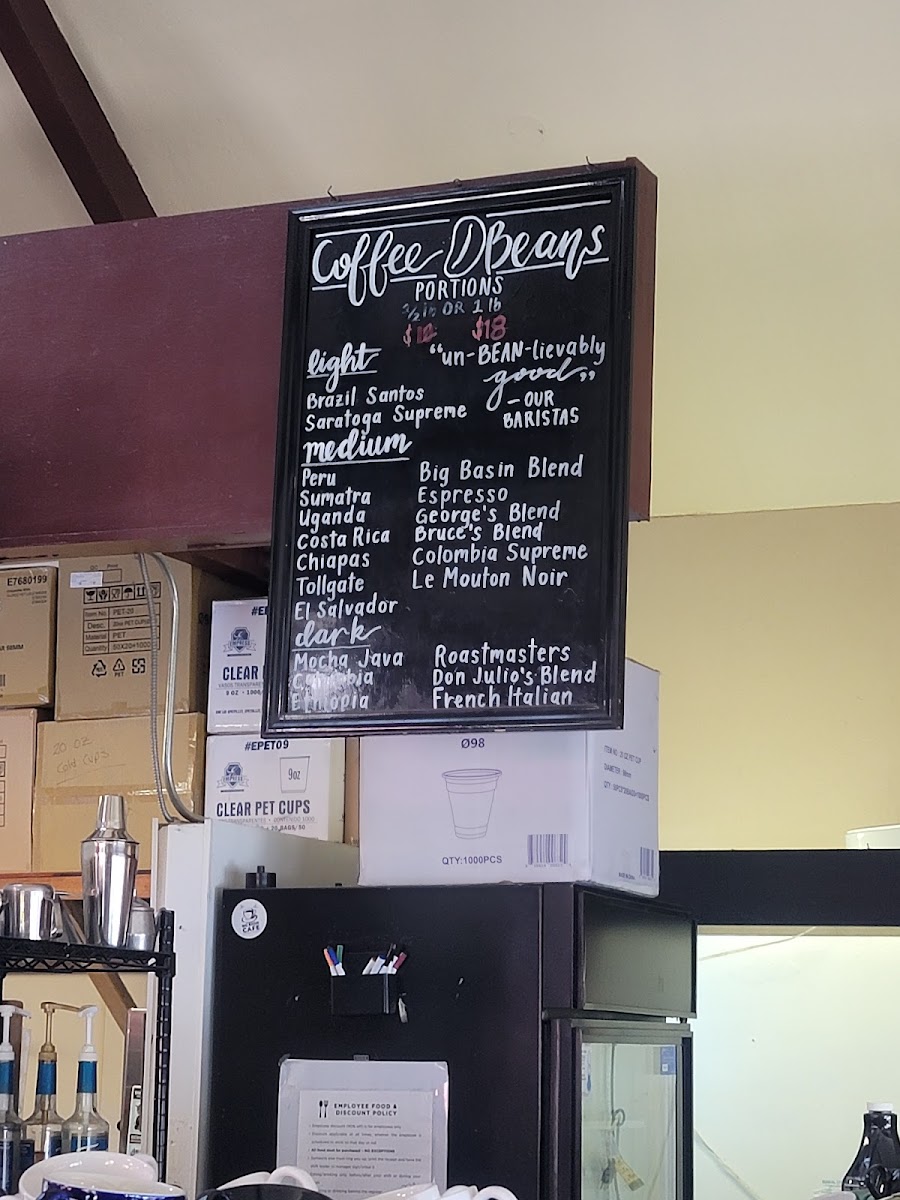 Coffee Beans
PORTIONS
1/2 lb OR 1 lb
$12 $18
"un-BEAN-lievably
good"
- OUR
BARISTAS
light
Brazil Santos
Saratoga Supreme
medium
Peru
Sumatra
Uganda
Costa Rica
Chiapas
Tollgate
El Salvador
Big Basin Blend
Espresso
George's Blend
Bruce's Blend
Colombia Supreme
Le Mouton Noir
dark
Mocha Java
Colombia
Ethiopia
Roastmasters
Don Julio's Blend
French Italian
E7680199
Item No. PET-20
Desc.
Material PET
Quantity
20 OZ
Cold Cups
CLEAR
#EPET09
EMPRESS
9oz
CLEAR PET CUPS
Ø98
QTY:1000PCS
CAFE
EMPLOYEE FOOD &
DISCOUNT POLICY